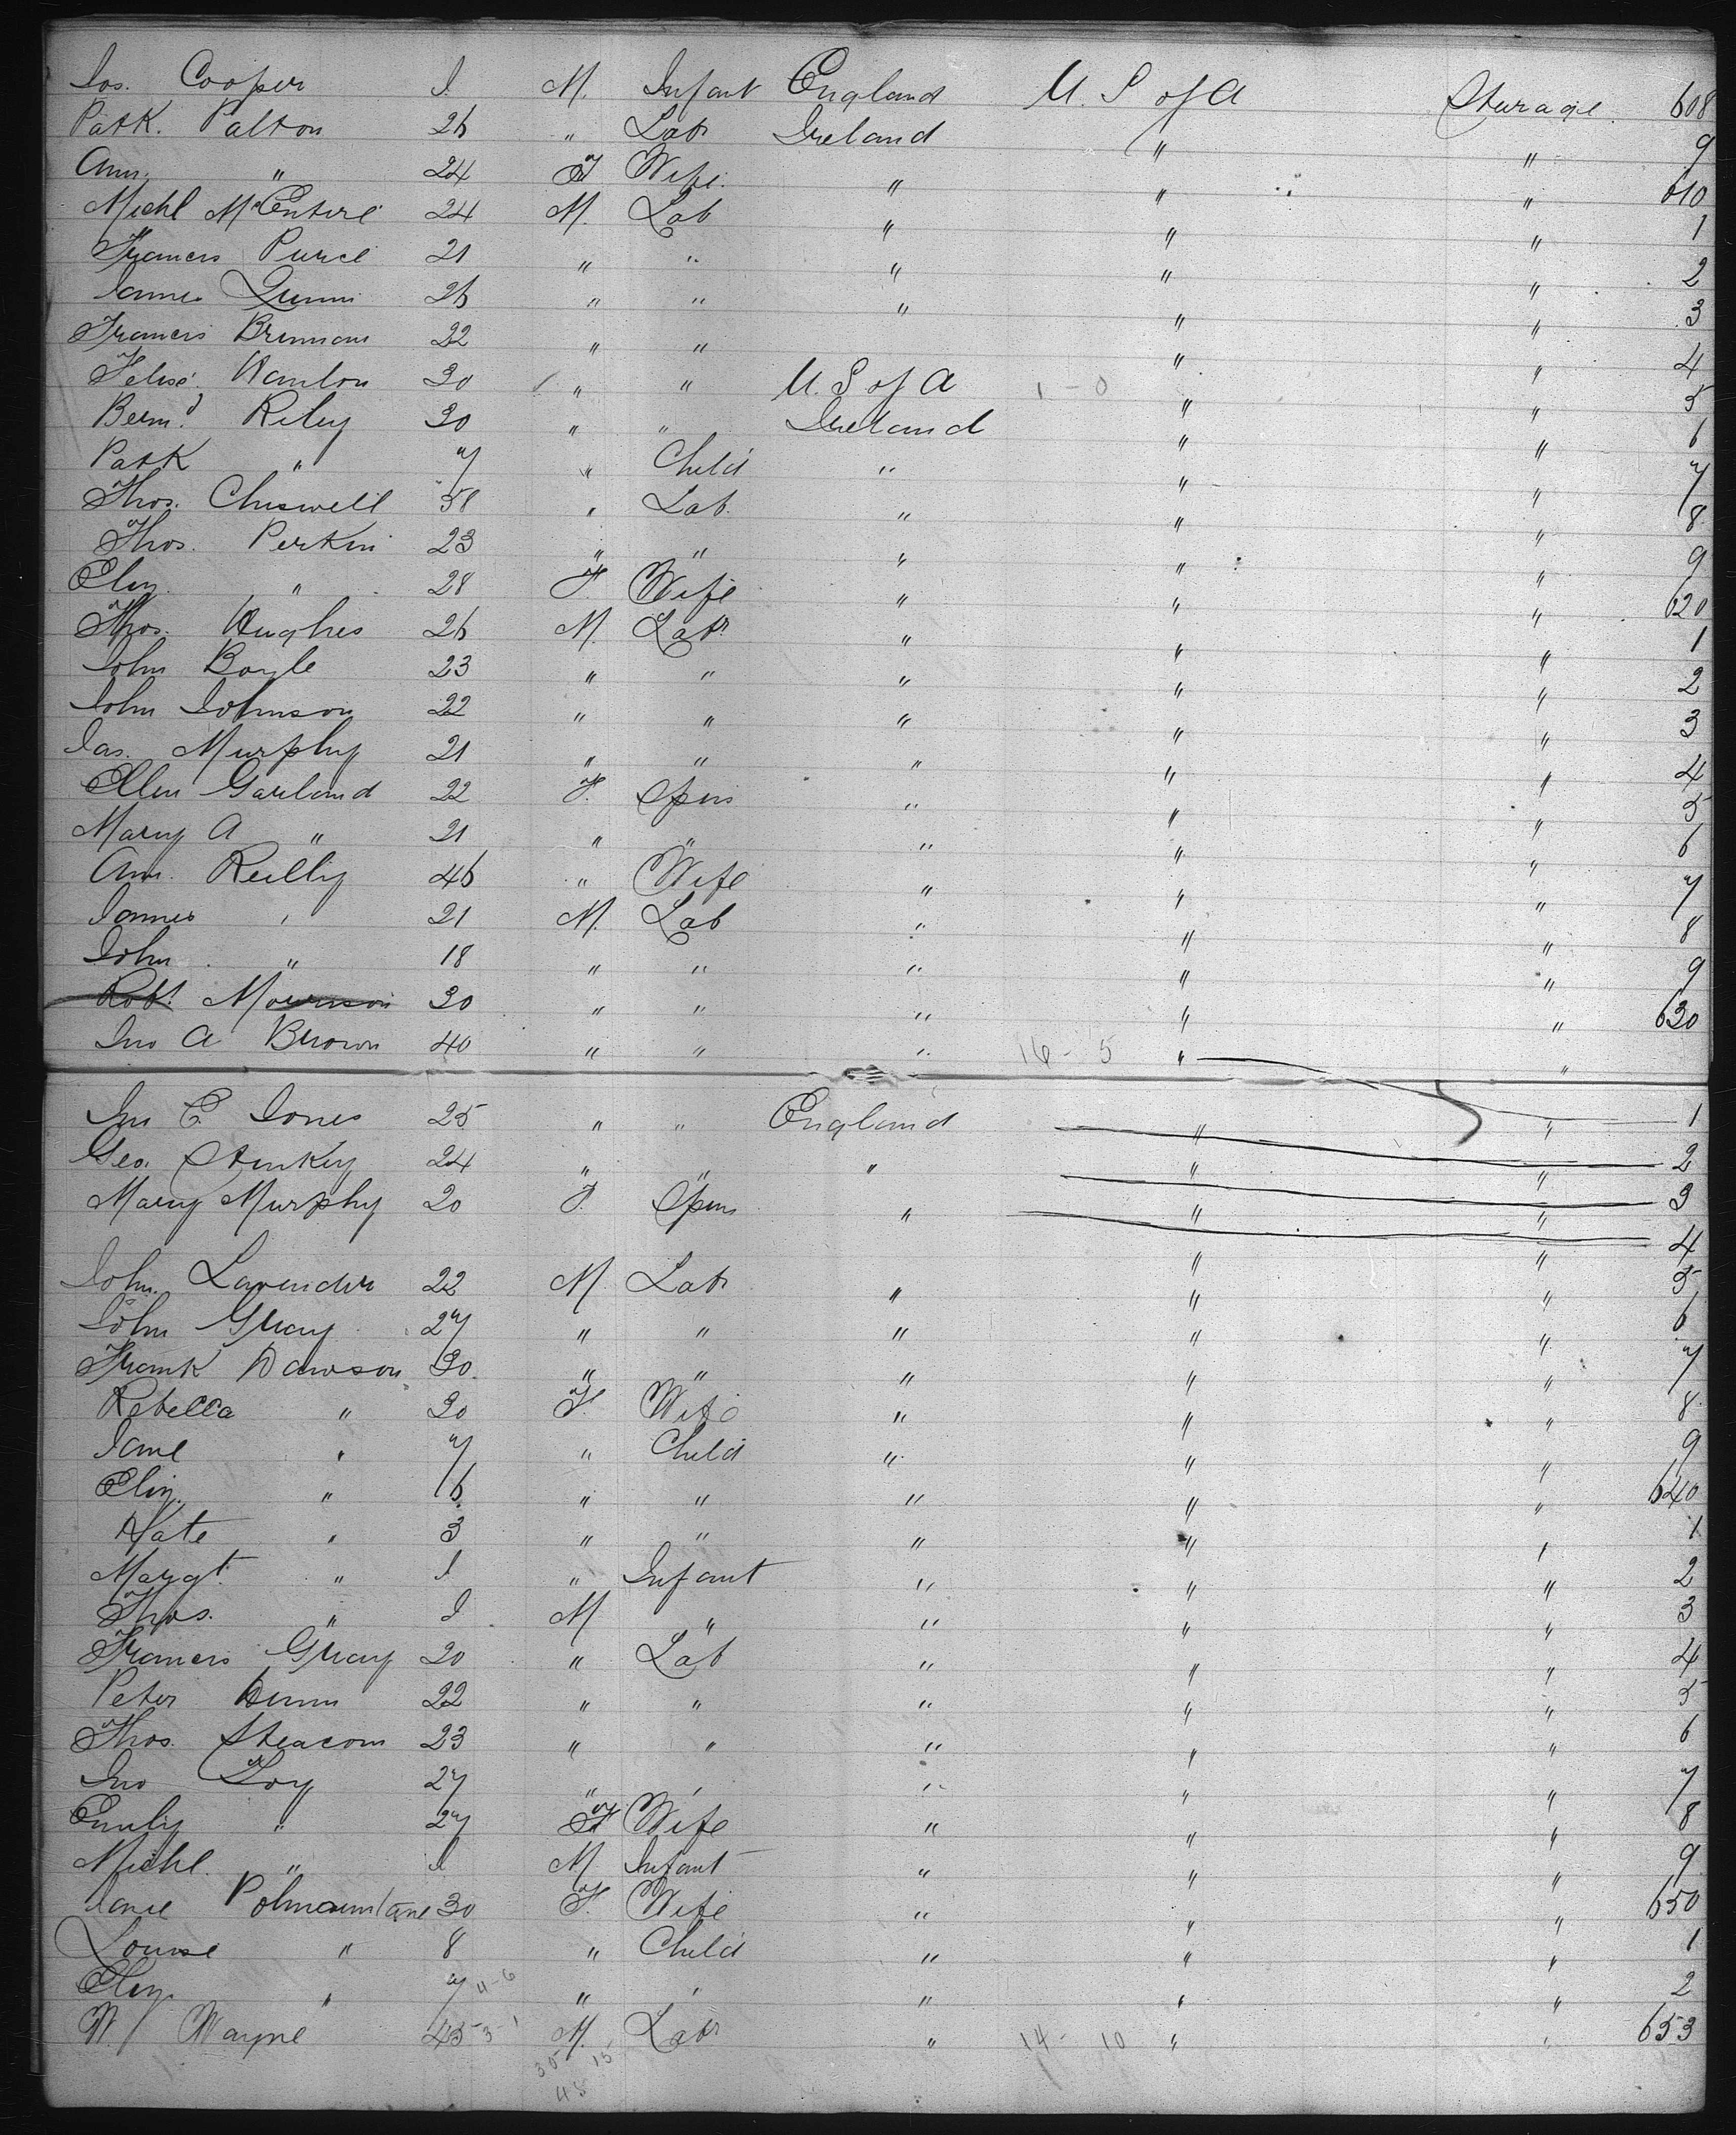 Jos. Cooper I. M. Infant England U. S of A Sturage. 608
Patk. Palton 26 " Labr Ireland " " 9
Ann. " 24 F Wife. " " " 610
Michl McEntire 24 M. Lab " " " 1
Francis Purce 21 " " " " " 2
James Quinn 26 " " " " " 3
Francis Brennan 22 " " " " 4
Hanlon 30 " " U. S of A 1 - 0 " " 5
Bernd. Riley 30 " " Ireland " " 6
Patk " 7 " Child " " " 7
Thos. Chiswell 58 " Lab. " " " 8
Thos. Perkin 23 " " " " " 9
Eliz. " 28 F. Wife " " " 620
Thos. Hughes 26 M. Labr " " " 1
John Boyle 23 " " " " " 2
John Johnson 22 " " " " " 3
Jas. Murphy 21 " " " " " 4
Ellen Garland 22 F. Spin " " " 5
Mary A " 21 " " " " " 6
Ann. Reilly 46 " Wife " " " 7
James " 21 M. Lab " " " 8
John " 18 " " " " " 9
Robt. Morrison 30 " " " " " 630
Jno A Brown 40 " " " 16 - 5 " "
Jno E Jones 25 " " England " " 1
Geo. Stinkey 24 " " " " " 2
Mary Murphy 20 F. Spin " " " 3
" " 4
John. Lavender 22 M. Labr " " " 5
John Gray 27 " " " " " 6
Frank Dawson 30. " " " " " 7
Rebecca " 30 F. Wife " " " 8
Jane " 7 " Child " " " 9
Eliz. " 6 " " " " " 640
Kate " 3 " " " " " 1
Margt. " I " Infant " " " 2
Thos. " I M " " " " 3
Francis Gray 20 " Lab " " " 4
Peter Dunn 22 " " " " " 5
Thos. Steacom 23 " " " " " 6
Jno Foy 27 " " " " " 7
Emily " 27 F Wife " " " 8
Michl. " I M Infant " " " 9
Jane 30 F. Wife " " " 650
Louise " 8 " Child " " " 1
Eliz. " 7 4-6 " " " " " 2
W. Wayne 45 3-1 M. Labr " 14 - 10 " " 653
30 15
45